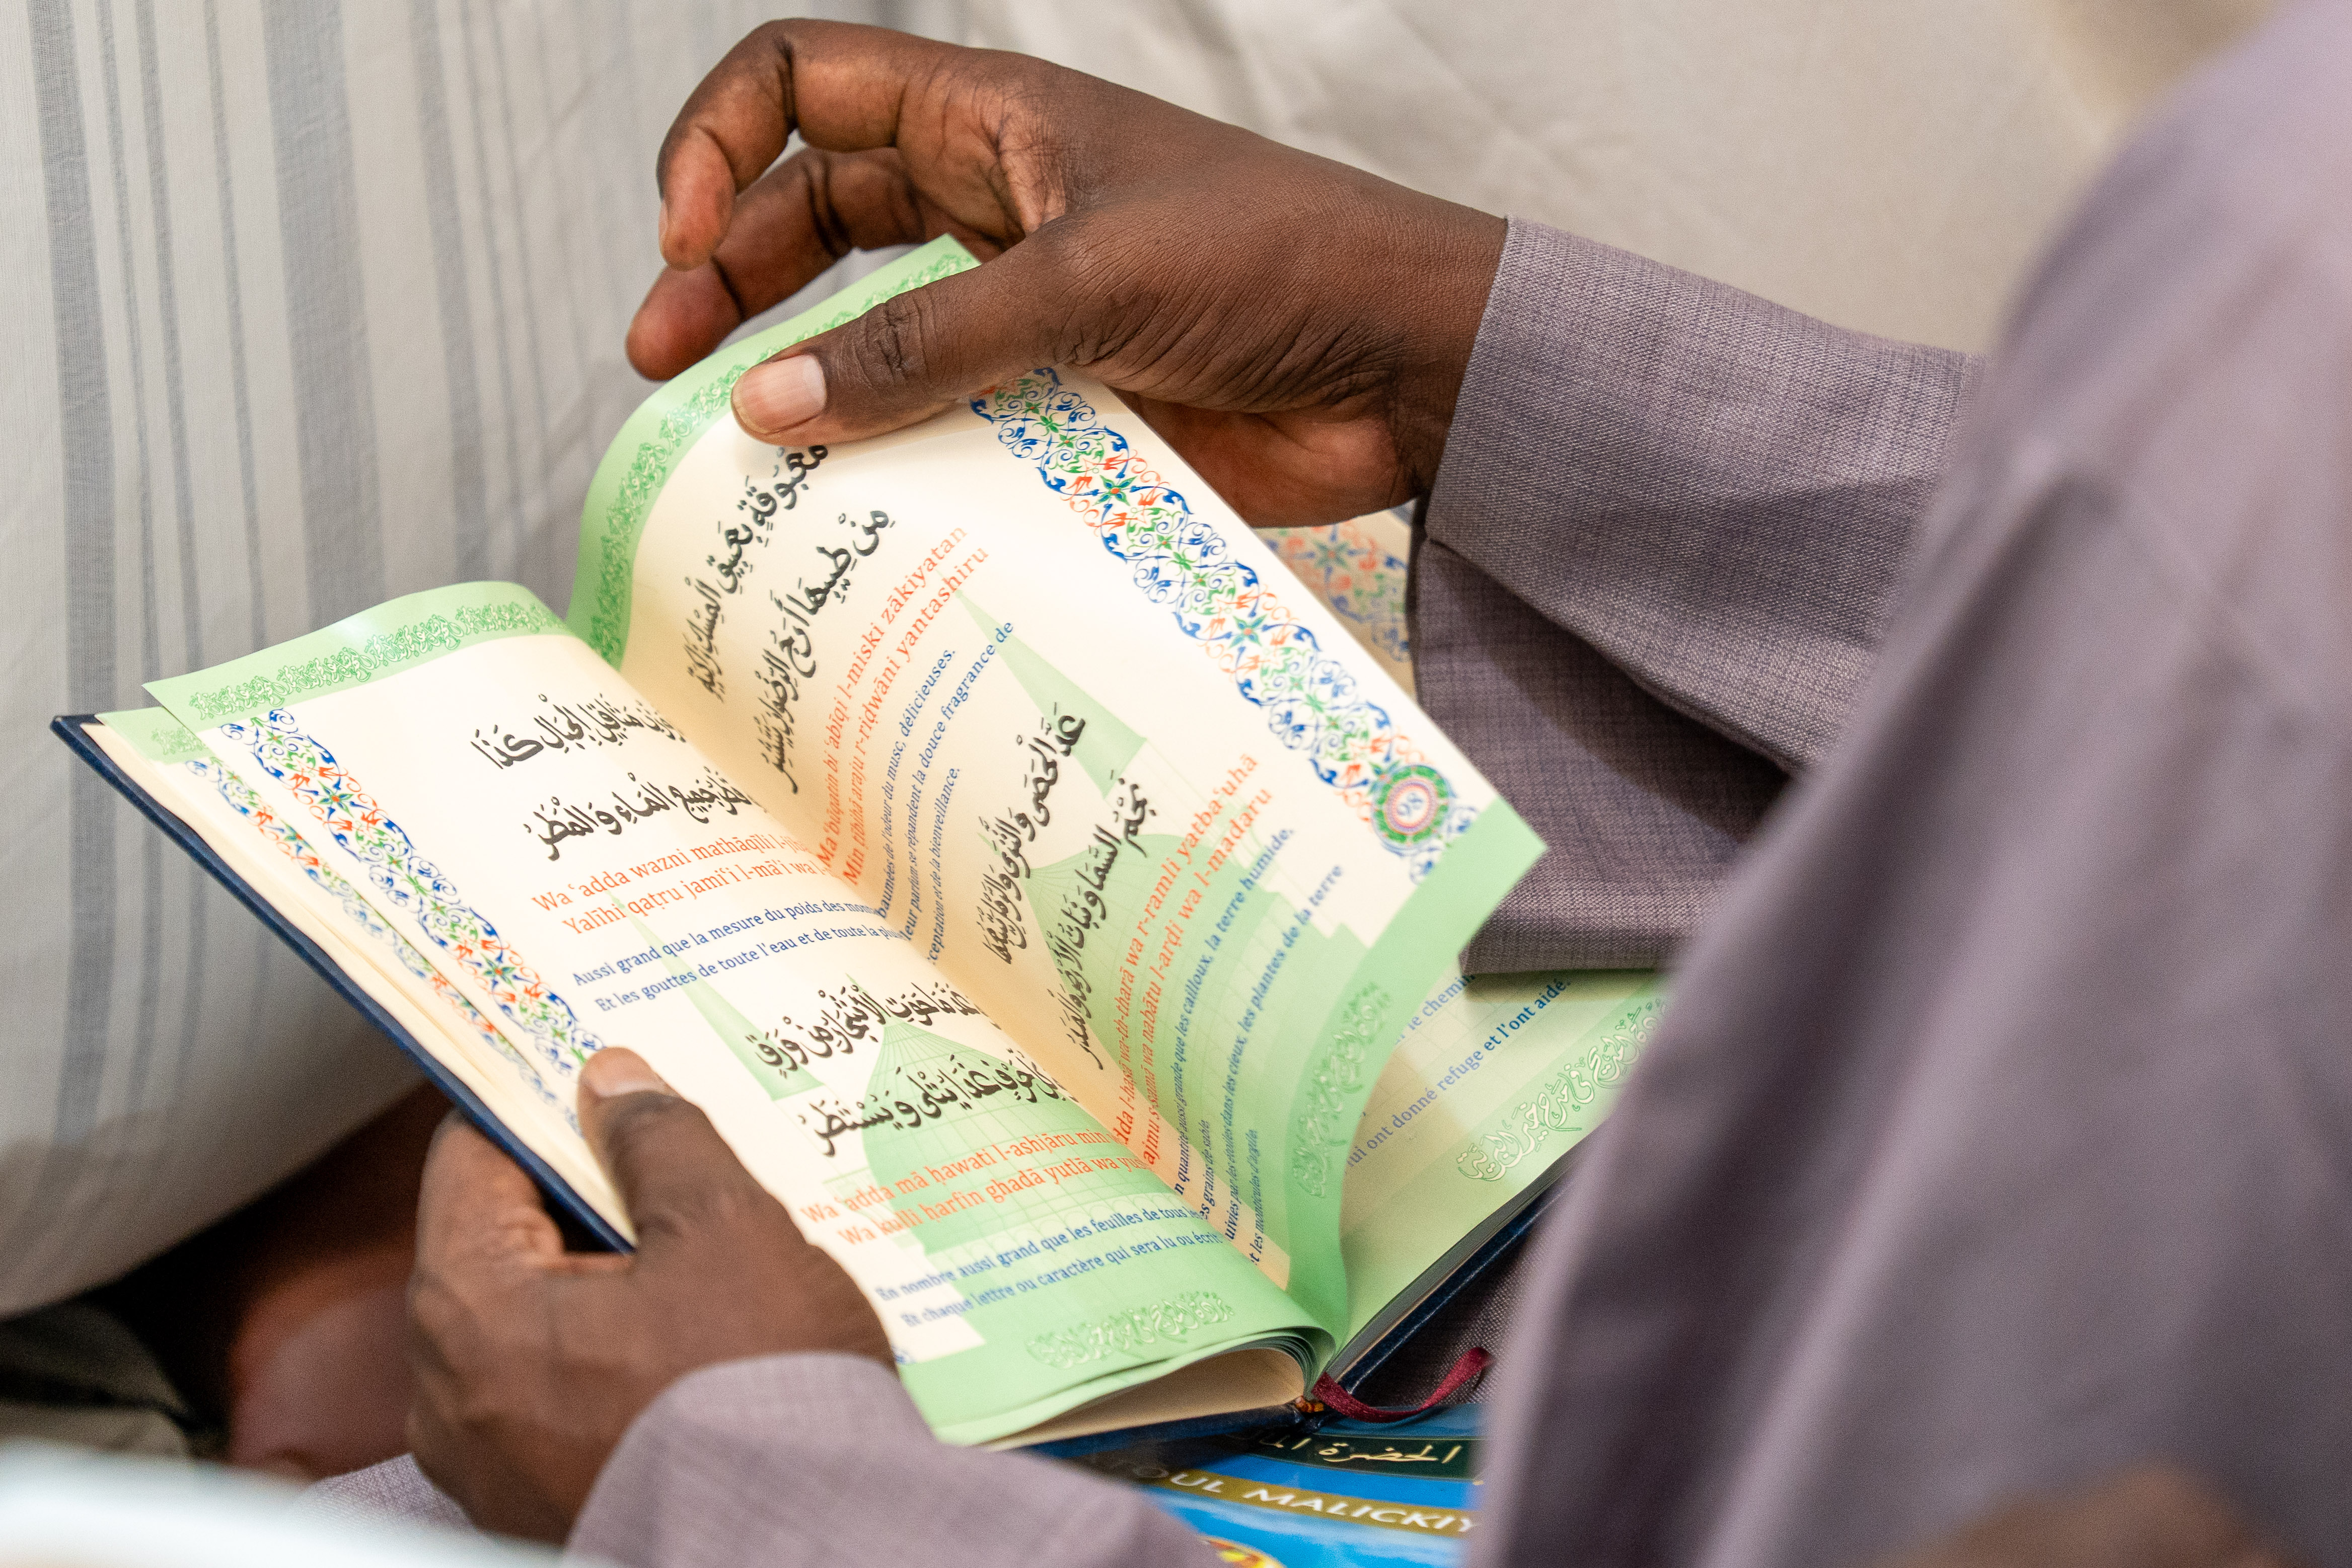 مَعْبُوقَةٍ بِعَبِيقِ الْمِسْكِ
مِنْ طِيبِهَا أَرَجُ الرِّضْوَانِ يَنْتَشِرُ
bi ʿabiqi l-miski zākiyatan
Min ṭībihā araju r-riḍwāni yantashiru
baumées de l'odeur du musc, délicieuses.
leur parfum se répandent la douce fragrance de
ceptation et de la bienveillance.
عَدَّ الْحَصَى وَالثَّرَى وَالرَّمْلِ يَتْبَعُهَا
نَجْمُ السَّمَا وَنَبَاتُ الْأَرْضِ وَالْمَدَرُ
dda l-ḥaṣā wa-th-tharā wa r-ramli yatbaʿuhā
ajmu s-samā wa nabātu l-arḍi wa l-madaru
n quantité aussi grande que les cailloux, la terre humide,
es grains de sable
uivies par les étoiles dans les cieux, les plantes de la terre
t les monticules d'argile.
98
مَثَاقِيلِ الْجِبَالِ كَذَا
جَمِيعِ الْمَاءِ وَالْمَطَرُ
Wa ʿadda wazni mathāqīli l-
Yalīhi qaṭru jamīʿi l-mā'i wa l-
Aussi grand que la mesure du poids des
Et les gouttes de toute l'eau et de toute la
مَا حَوَتِ الْأَشْجَارُ مِنْ وَرَقٍ
حَرْفٍ غَدَا يُتْلَى وَيُسْتَطَرُ
Wa ʿadda mā ḥawati l-ashjāru min
Wa kulli ḥarfin ghadā yutlā wa yu
En nombre aussi grand que les feuilles de tous
Et chaque lettre ou caractère qui sera lu ou écrit
le chemin
ui ont donné refuge et l'ont aidé.
الحضرة
TOUL MALICKIY